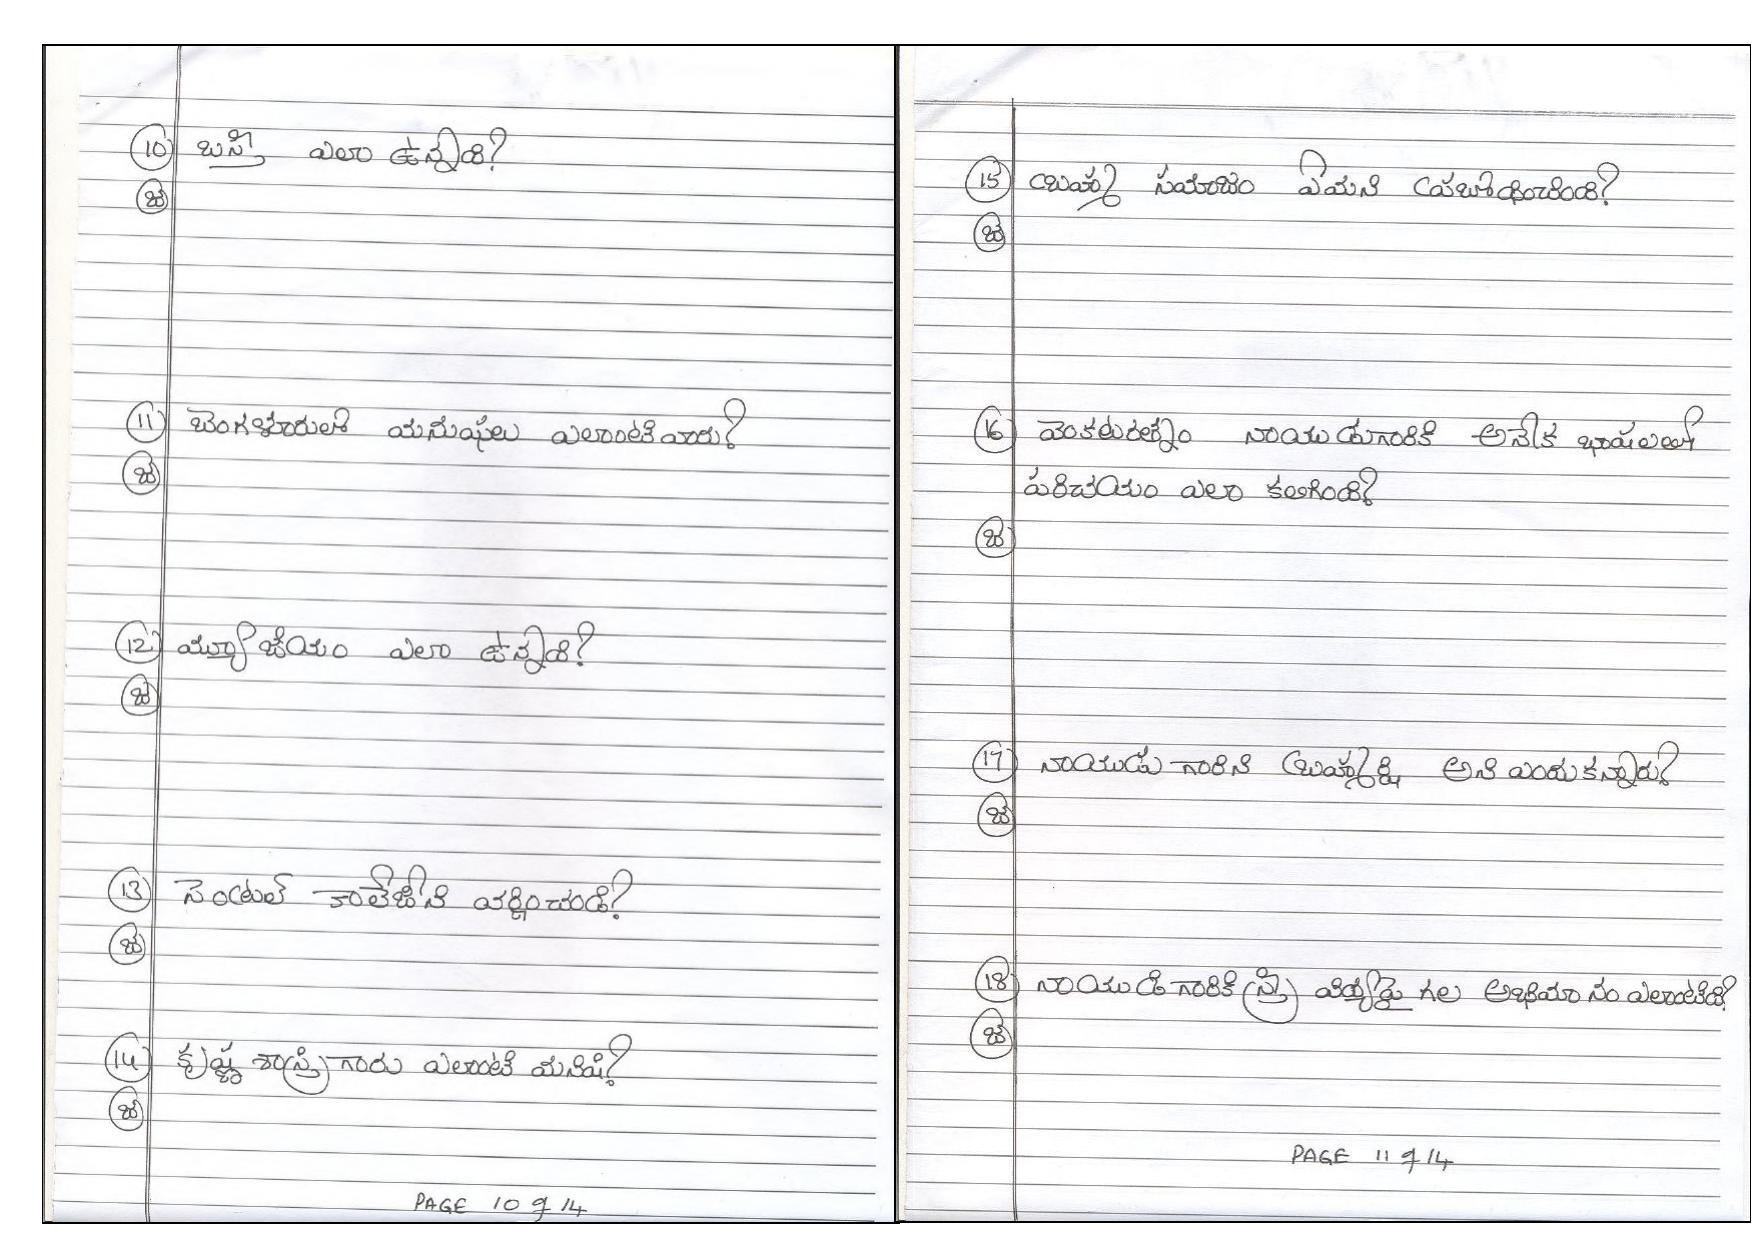 10) బస్తీ ఎలా ఉన్నది?
జ
11) బెంగళూరులోని మనుషులు ఎలాంటి వారు?
జ
12) మ్యూజియం ఎలా ఉన్నది?
జ
13) సెంట్రల్ కాలేజీని వర్ణించండి?
జ
14) కృష్ణ శాస్త్రిగారు ఎలాంటి మనిషి?
జ
PAGE 10 of 14
15) బ్రహ్మ సమాజం ఏమని ప్రబోధించింది?
జ
16) వెంకటరత్నం నాయుడుగారికి అనేక భాషలలో
పరిచయం ఎలా కలిగింది?
జ
17) నాయుడు గారిని బ్రహ్మర్షి అని ఎందుకన్నారు?
జ
18) నాయుడిగారికి స్త్రీ విద్యపై గల అభిమానం ఎలాంటిది?
జ
PAGE 11 of 14